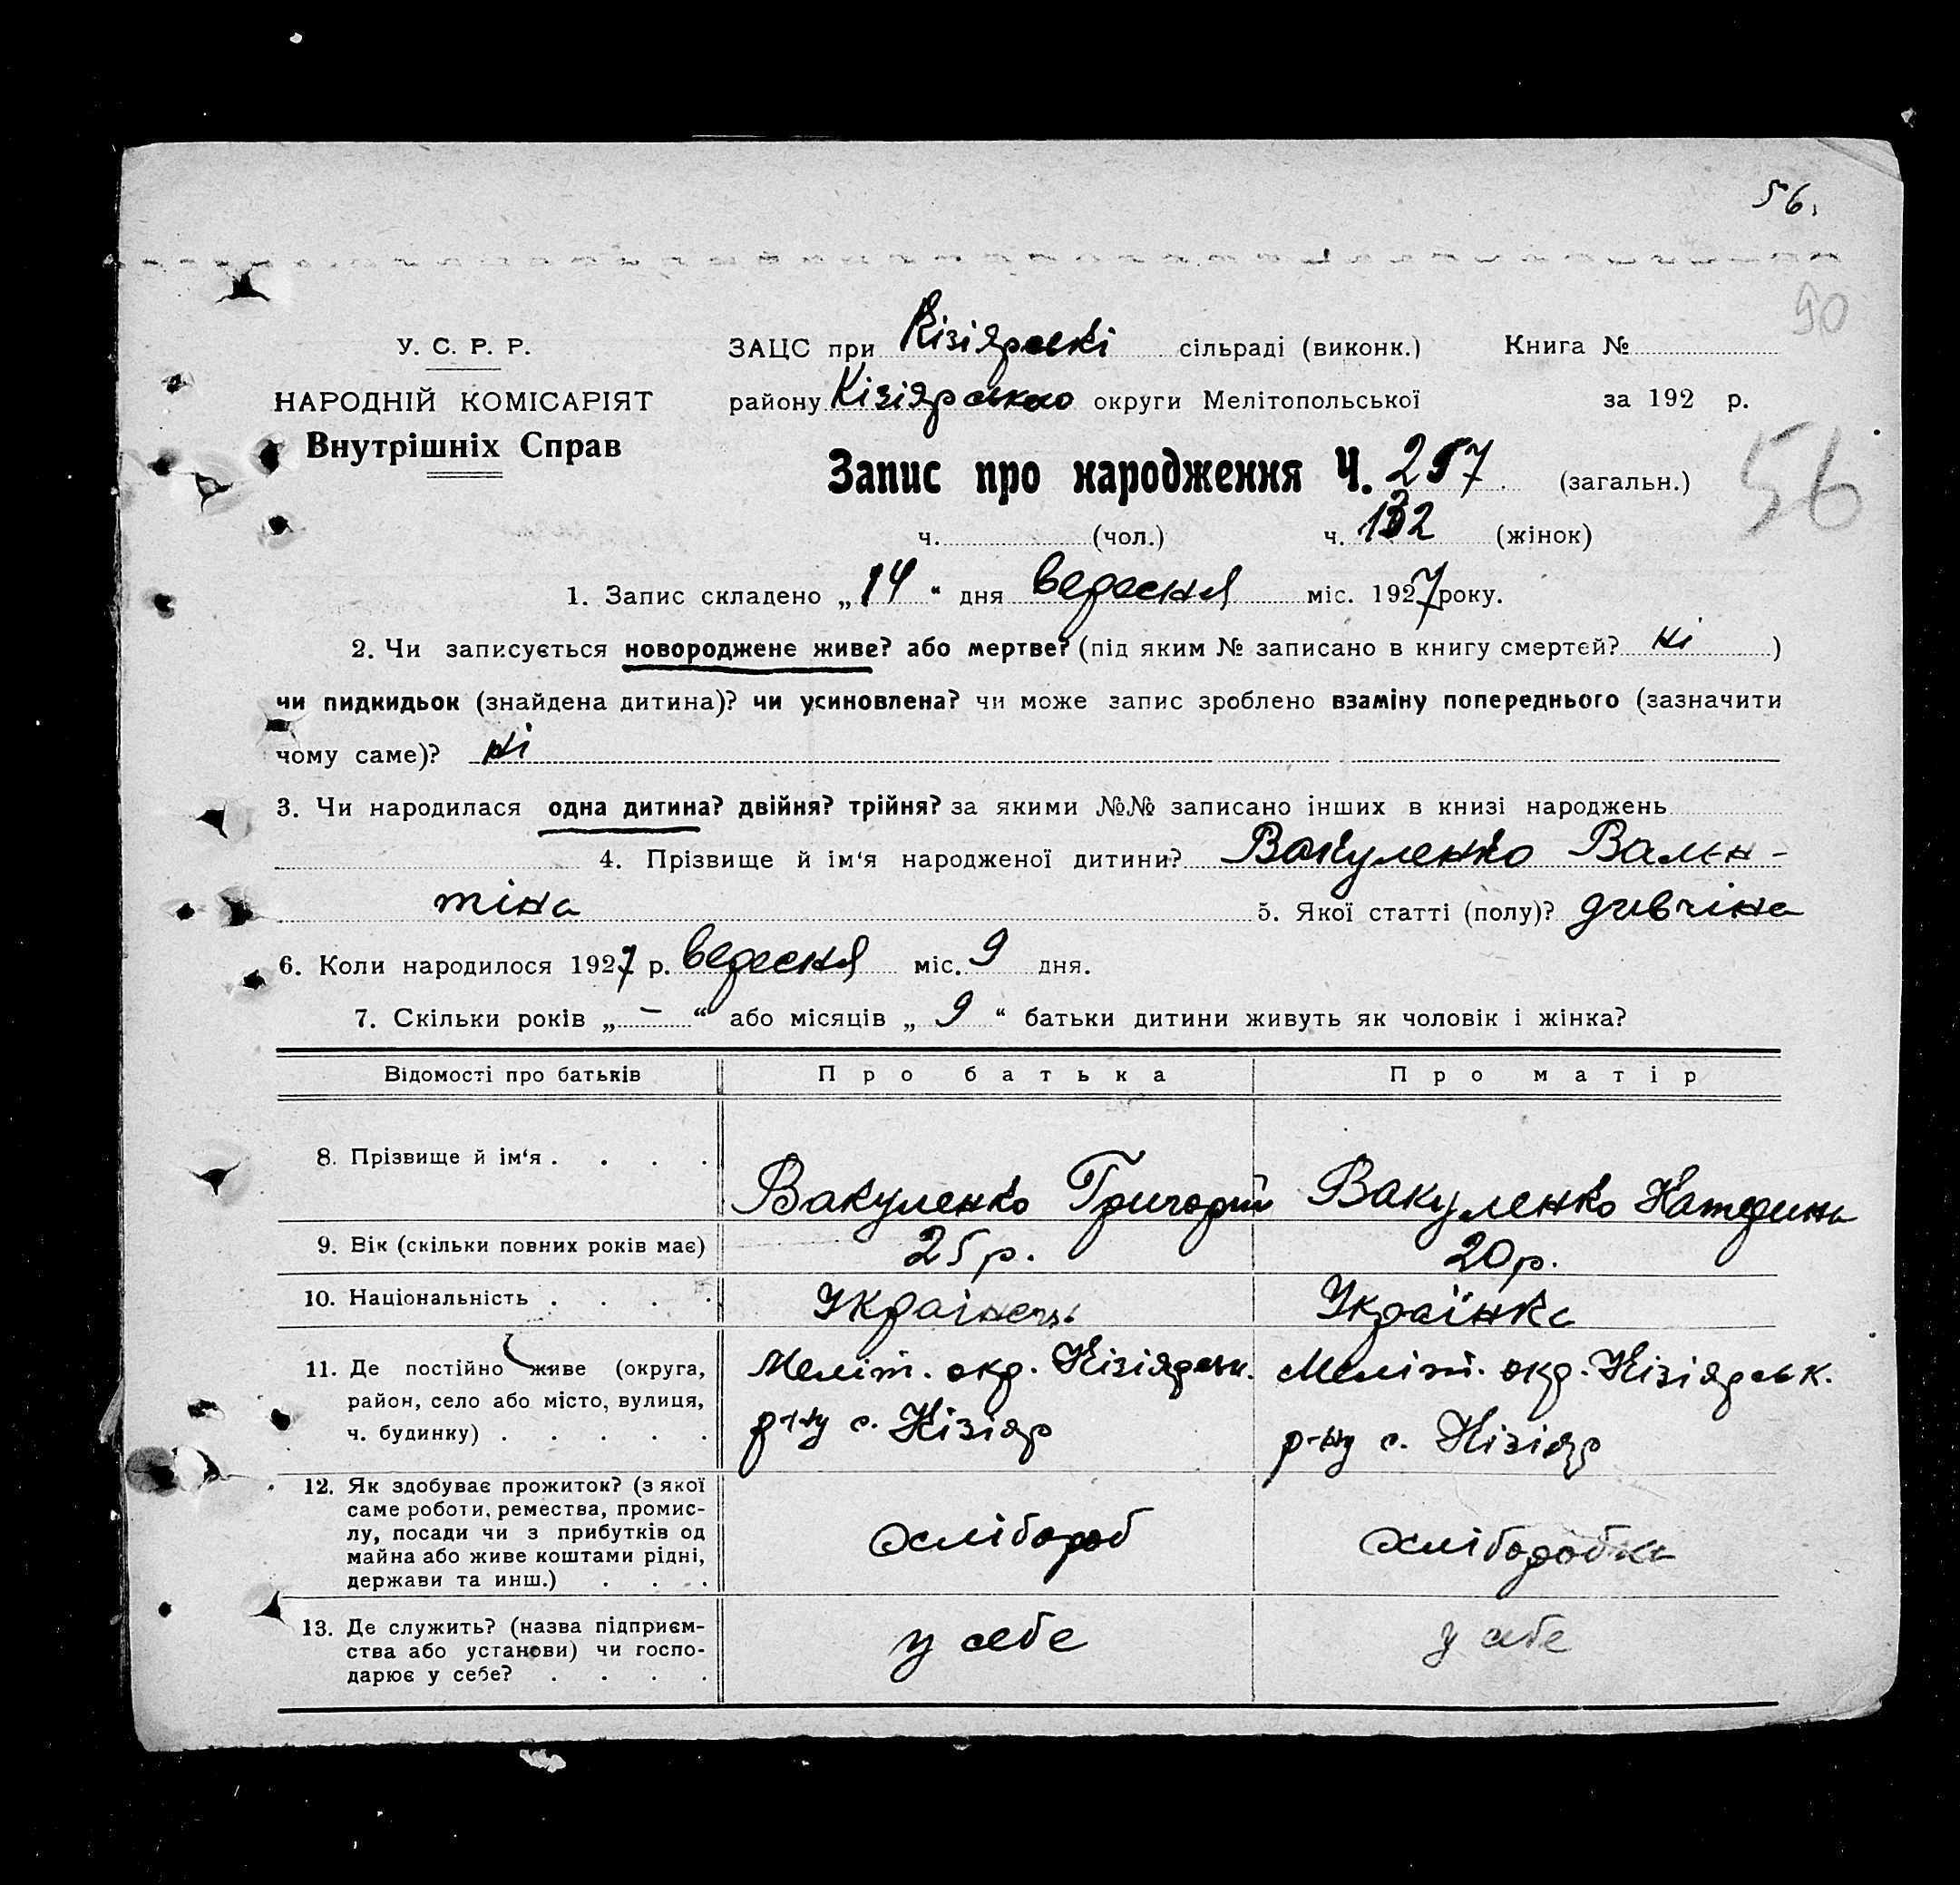 56.
90
У. С. Р. Р.
НАРОДНІЙ КОМІСАРІЯТ
Внутрішніх Справ
ЗАЦС при Кізіярській сільраді (виконк.) Книга №
району Кізіярського округи Мелітопольської за 192 р.
56
Запис про народження Ч. 257 (загальн.)
ч. (чол.) ч. 132 (жінок)
1. Запис складено „14“ дня вересня міс. 1927 року.
2. Чи записується новороджене живе? або мертве? (під яким № записано в книгу смертей? ні )
чи пидкидьок (знайдена дитина)? чи усиновлена? чи може запис зроблено взаміну попереднього (зазначити
чому саме)? ні
3. Чи народилася одна дитина? двійня? трійня? за якими №№ записано інших в книзі народжень
4. Прізвище й ім‘я народженої дитини? Вакуленко Вален-
тіна 5. Якої статті (полу)? дивчіна
6. Коли народилося 1927 р. вересня міс. 9 дня.
7. Скільки років „ — “ або місяців „ 9 “ батьки дитини живуть як чоловік і жінка?
Відомості про батьків Про батька Про матір
8. Прізвище й ім‘я . . . . Вакуленко Григорий Вакуленко Катерина
9. Вік (скільки повних років має) 25 р. 20 р.
10. Національність . . . . Українець Українка
11. Де постійно живе (округа, Меліт. окр. Кізіярськ. Меліт. окр. Кізіярськ.
район, село або місто, вулиця, р-ну с. Кізіяр р-ну с. Кізіяр
ч. будинку) . . . . .
12. Як здобуває прожиток? (з якої
саме роботи, ремества, промис-
лу, посади чи з прибутків од хлібороб хлібороبка
майна або живе коштами рідні,
держави та инш.) . . .
13. Де служить? (назва підприєм-
ства або установи) чи госпо- у себе у себе
дарює у себе? . . . .